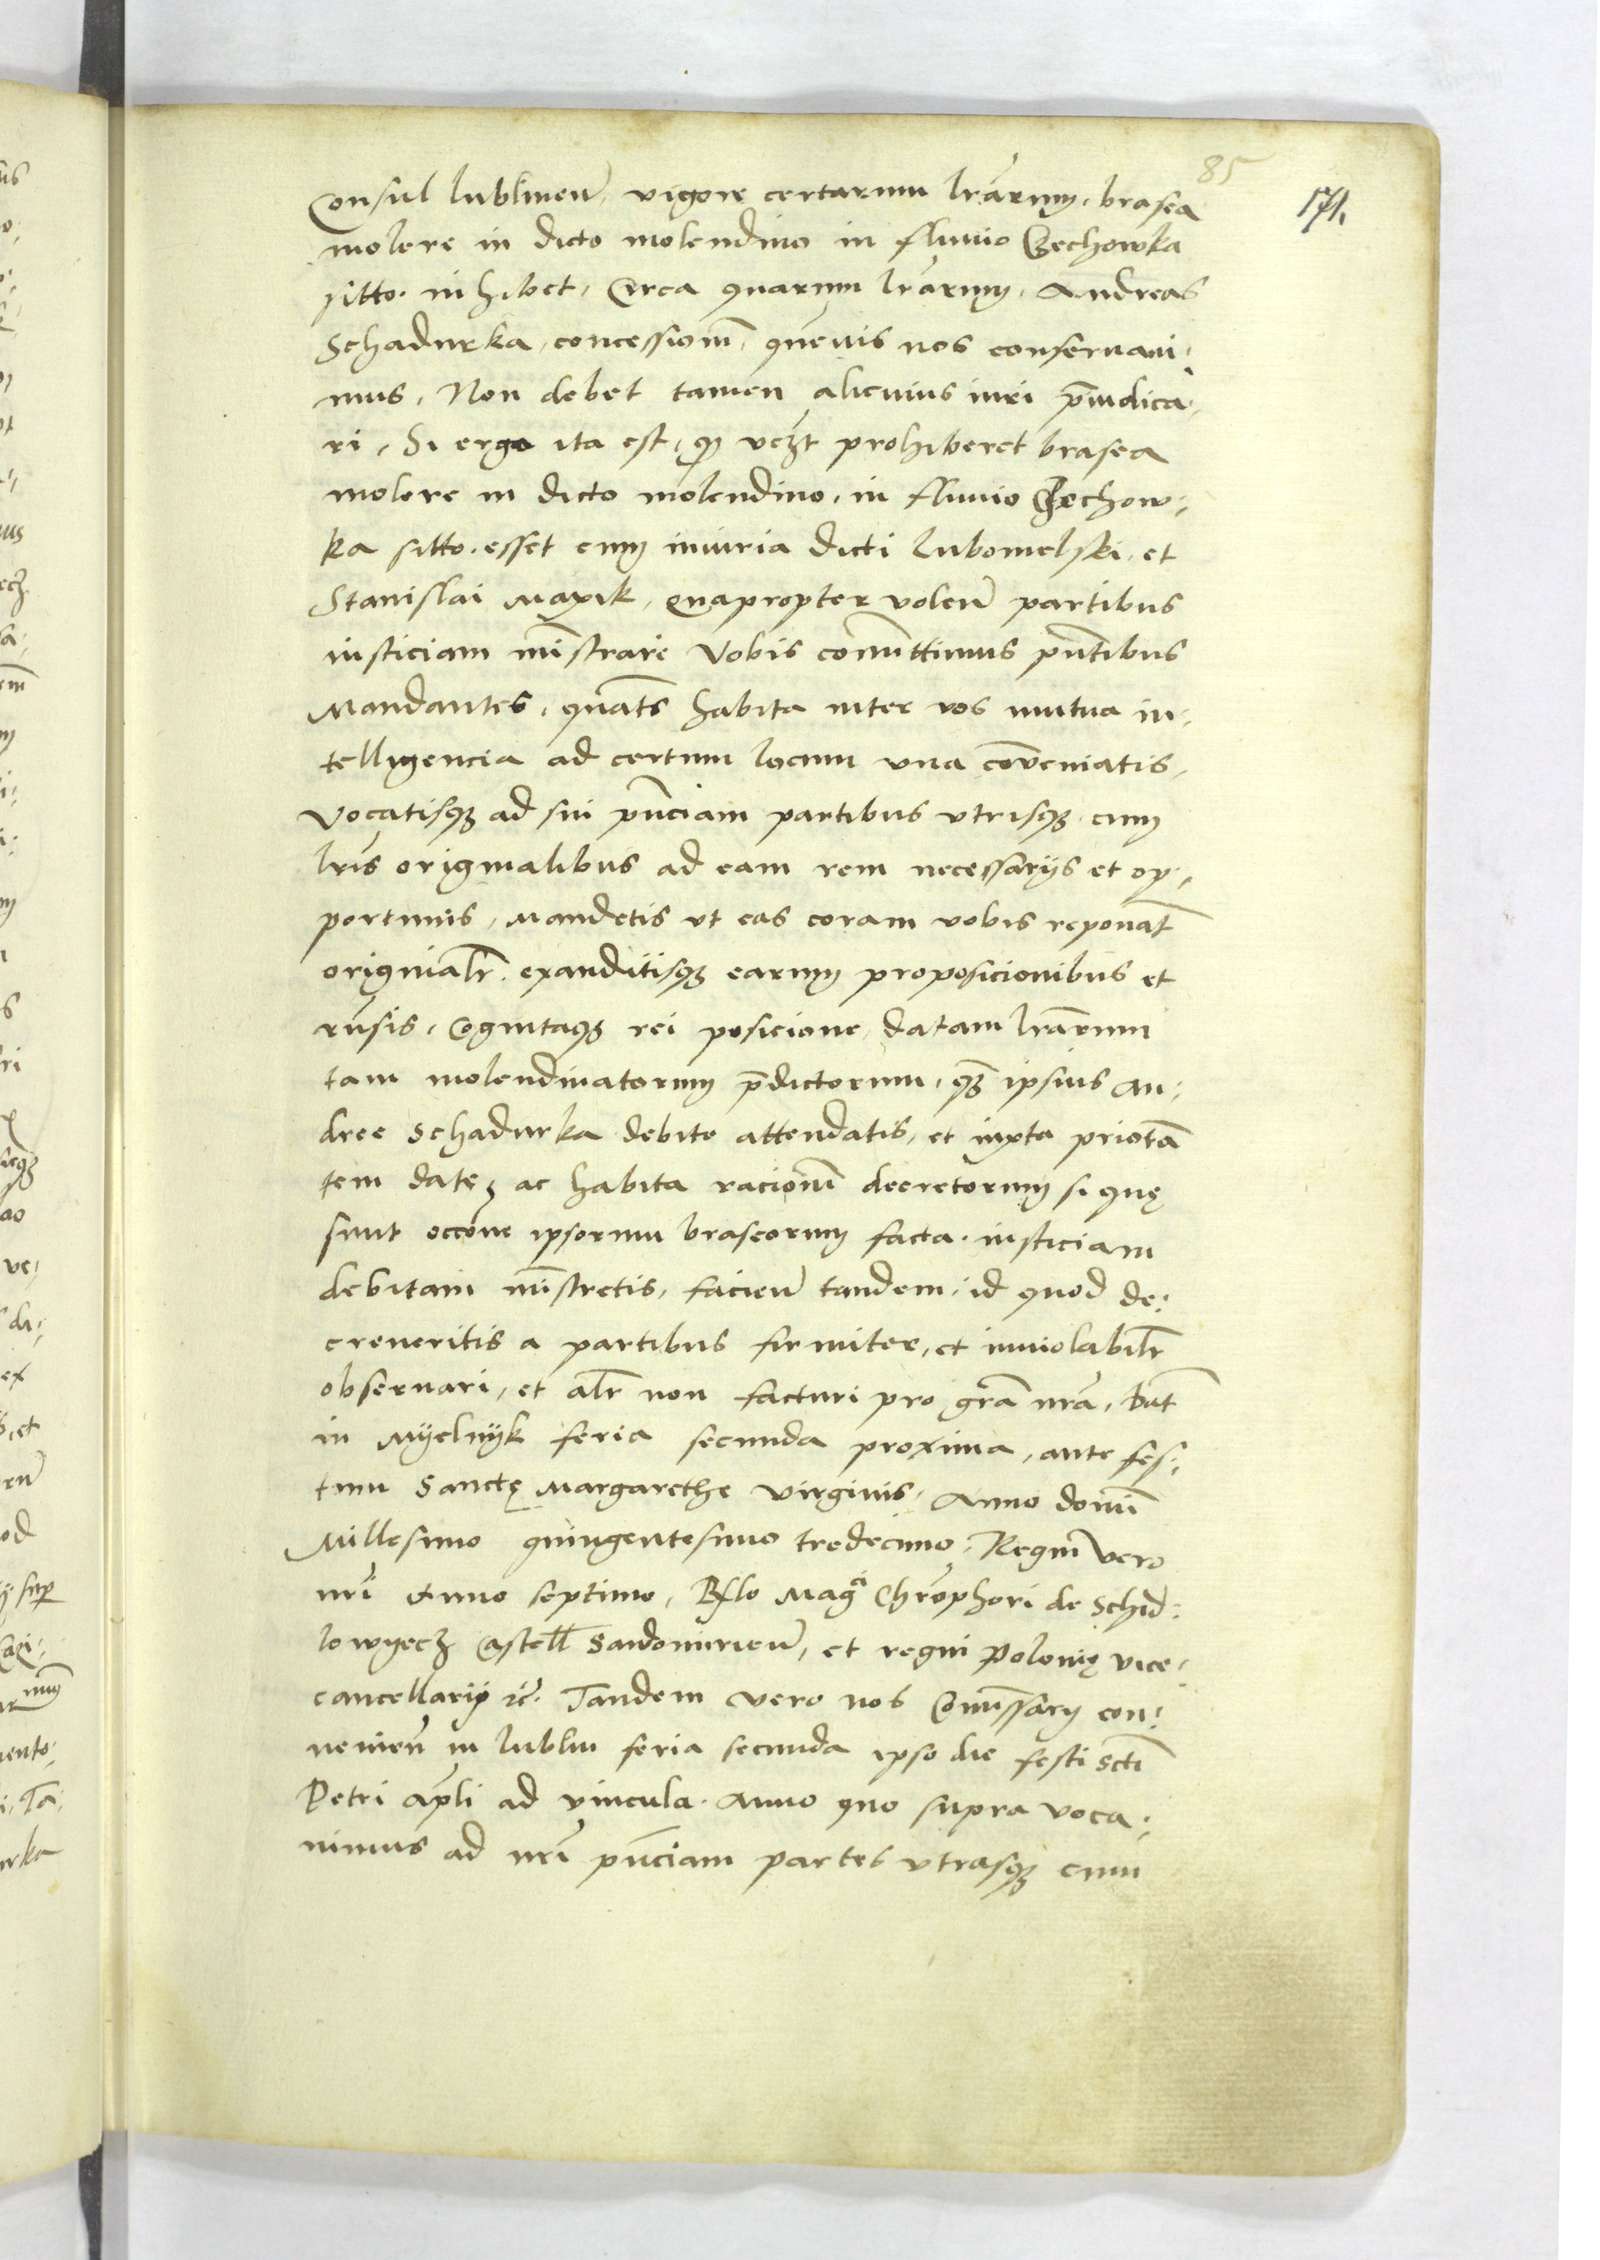 85
171.
Consul lublineñ, vigore certarum lrārum, brasea
molere in dicto molendino in fluuio Czechowka
sitto. inhibet, Circa quarum lrārum, Andreas
Schadurka, concessionē, quēuis nos conseruaui:
mus, Non debet tamen alicuius iuri p̄iudica:
ri, Si ergo ita est, qɜ vcʒt prohiberet brasea
molere in dicto molendino, in fluuio Czechow:
ka sitto. esset cum iniuria dicti Lubomelski, et
Stanislai Maxik, Quapropter voleñ partibus
iusticiam mīstrare Vobis comittimus pn̄tibus
Mandantes, quats̄ habita inter vos mutua in:
telligencia ad certum locum vna cōveniatis,
Vocatisqɜ ad sui pn̄ciam partibus vtrisqɜ cum
lris̄ originalibus ad eam rem necessarijs et op:
portunis, Mandetis vt eas coram vobis reponāt
originalr̄. exauditisqɜ earum proposicionibus et
rūsis, Cognitaqɜ rei posicione, datam lrārum
tam molendinatorum p̄dictorum, qɜ̄ ipsius An:
dree Schadurka debite attendatis, et iuxta priotā
tem datę, ac habita racionē decretorum si quę
sunt occōne ipsorum braseorum facta. iusticiam
debitam mīstretis, facieñ tandem, id quod de:
creueritis a partibus firmiter, et inuiolabilr̄
obseruari, et alr̄ non facturi pro grā nrā, Dat̄
in Myelnyk feria secunda proxima, ante fes:
tum Sanctę Margarethe virginis, Anno domī
Millesimo quingentesimo tredecimo, Regnī vero
nrī Anno septimo, Rl̄o Magci Chrōphori de Schid:
lowyecz Castell̄ Sandomirieñ, et regni Polonię vice:
cancellarij ꝛc̄. Tandem vero nos Comīssarij con:
venieñ in lublin feria secunda ipso die festi sctī
Petri apl̄i ad vincula. Anno quo supra voca:
uimus ad nrī pn̄ciam partes vtrasqɜ cum